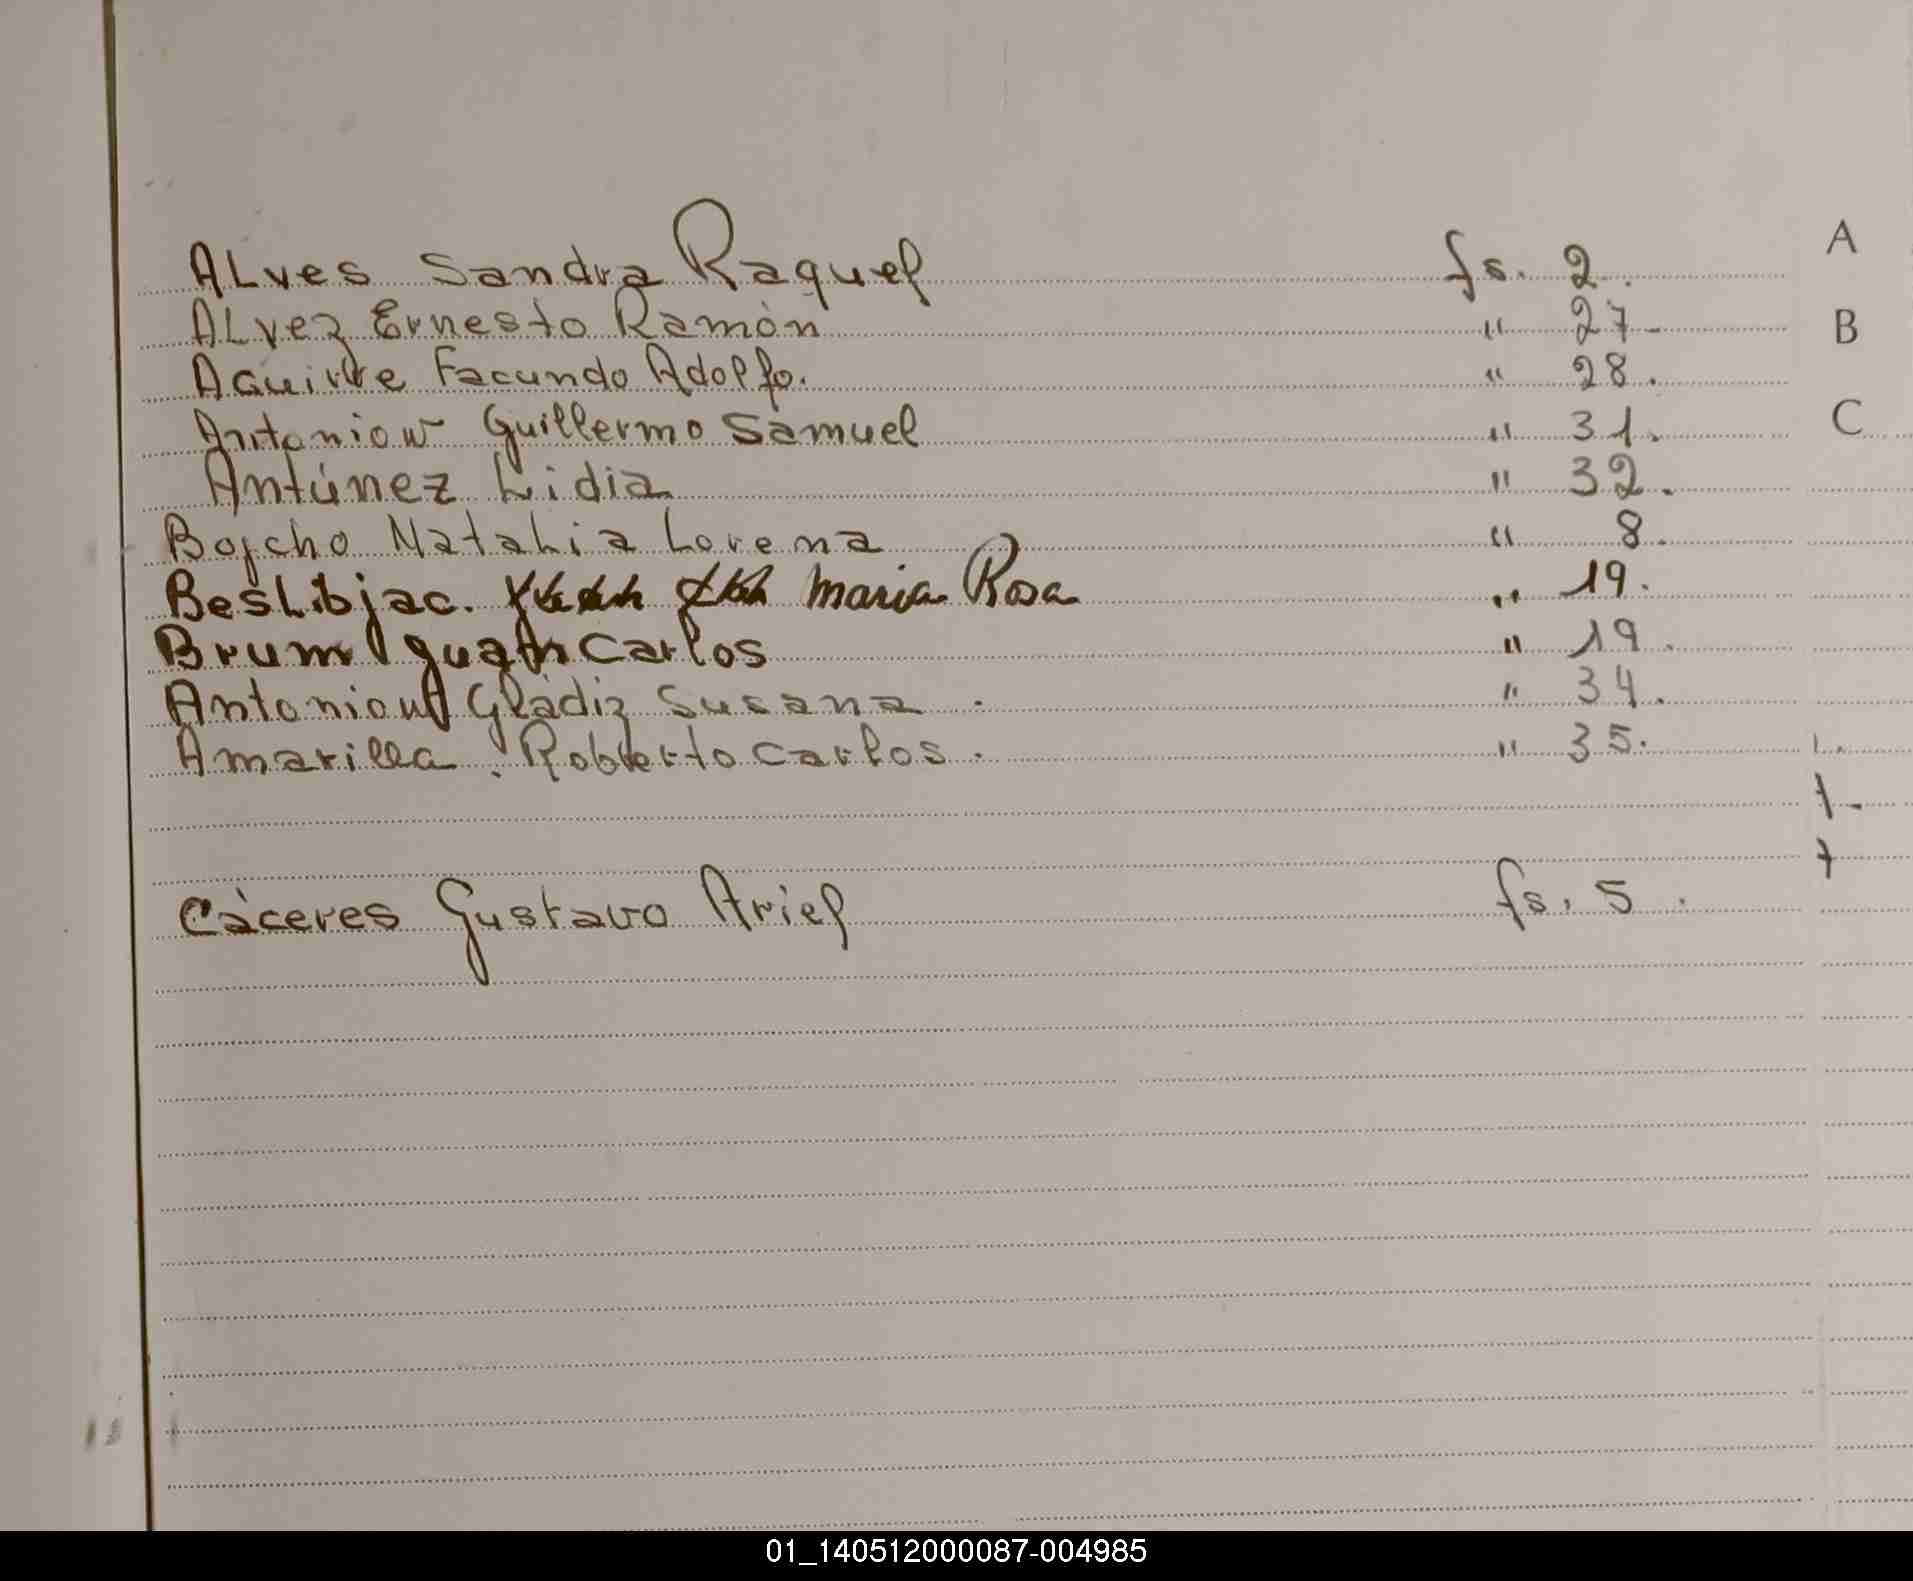 ALves Sandra Raquel fs. 2.
A
ALvez Ernesto Ramón " 27-
B
Aguirre Facundo Adolfo. " 28.
Antoniow Guillermo Samuel " 31.
C
Antúnez Lidia " 32.
Bojcho Natalia Lorena " 8.
BesLibjac. Maria Rosa " 19.
Brum Juan Carlos " 19.
Antoniow Gládiz Susana. " 34.
Amarilla. Roberto Carlos. " 35.
Cáceres Gustavo Ariel fs. 5.
01_140512000087-004985